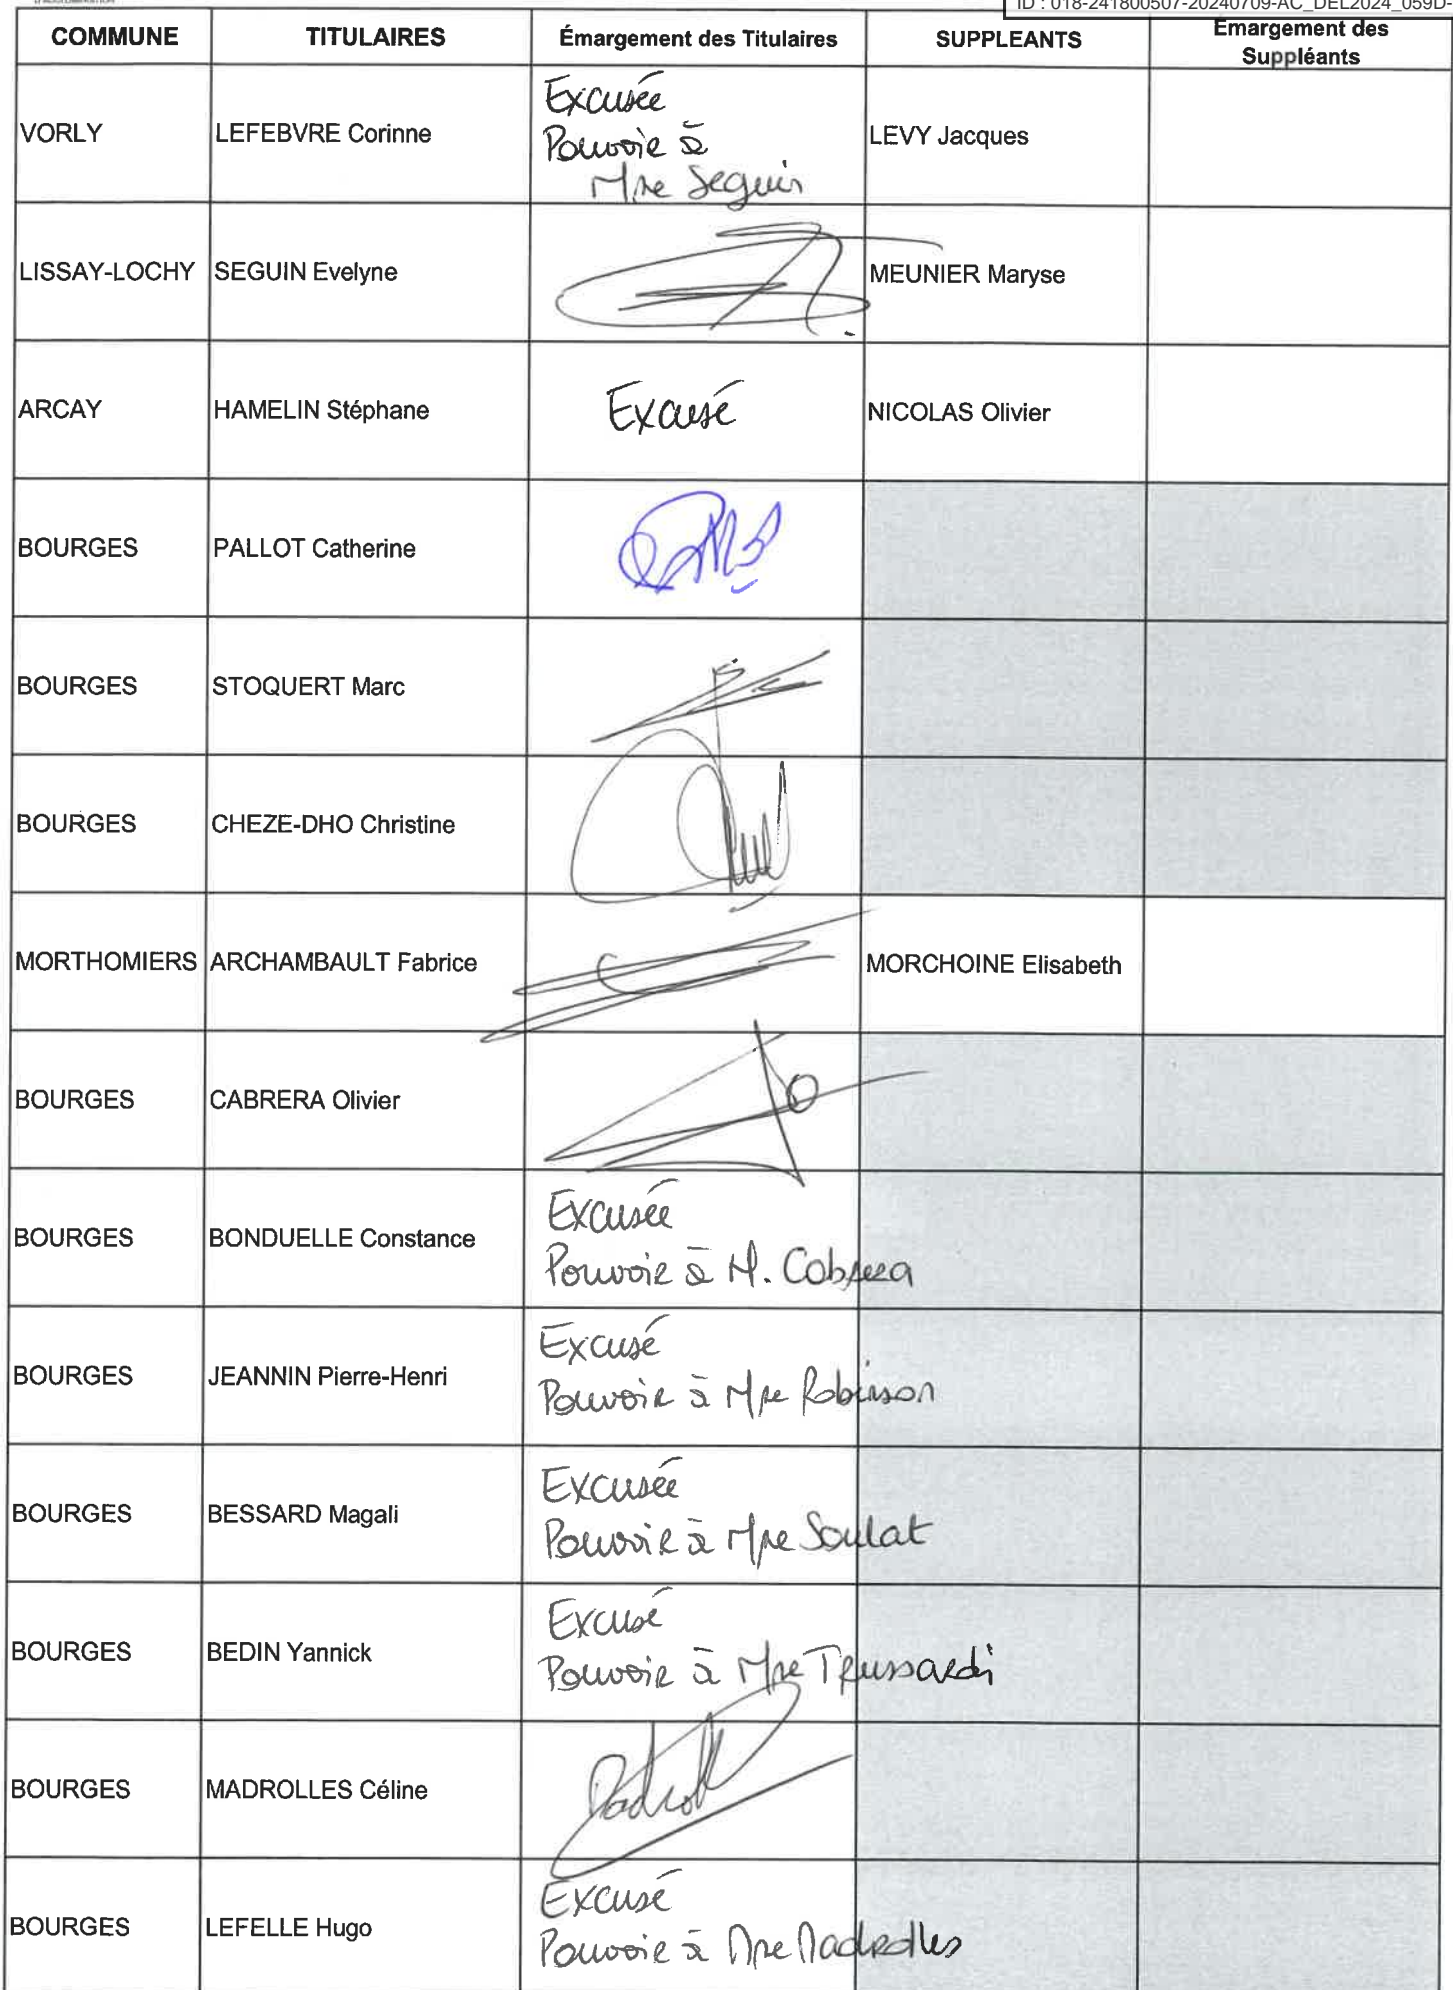 ID : 018-241800507-20240709-AC_DEL2024_059D-
COMMUNE TITULAIRES Émargement des Titulaires SUPPLEANTS Émargement des Suppléants
VORLY LEFEBVRE Corinne Excusée LEVY Jacques
Pouvoir à
Mme Seguin
LISSAY-LOCHY SEGUIN Evelyne MEUNIER Maryse
ARCAY HAMELIN Stéphane Excusé NICOLAS Olivier
BOURGES PALLOT Catherine
BOURGES STOQUERT Marc
BOURGES CHEZE-DHO Christine
MORTHOMIERS ARCHAMBAULT Fabrice MORCHOINE Elisabeth
BOURGES CABRERA Olivier
BOURGES BONDUELLE Constance Excusée
Pouvoir à M. Cabrera
BOURGES JEANNIN Pierre-Henri Excusé
Pouvoir à Mme Robinson
BOURGES BESSARD Magali Excusée
Pouvoir à Mme Soulat
BOURGES BEDIN Yannick Excusé
Pouvoir à Mme Trussardi
BOURGES MADROLLES Céline
BOURGES LEFELLE Hugo Excusé
Pouvoir à Mme Madrolles